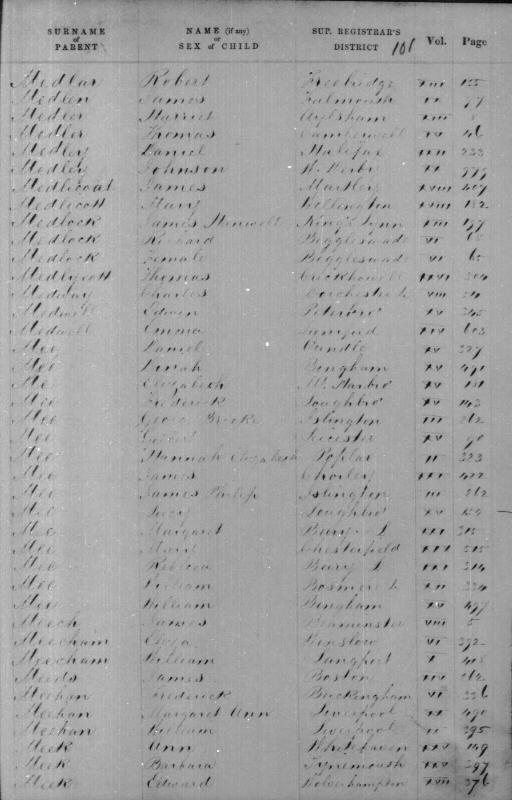 SURNAME of PARENT NAME (if any) or SEX of CHILD SUP. REGISTRAR'S DISTRICT Vol. Page
Medlar Robert Freebridge xiii 155
Medlen James Falmouth ix 77
Medler Harriet Aylsham xiii 8
Medler Thomas Camberwell iv 46
Medley Daniel Halifax 233
Medley Johnson W. Derby xx 777
Medlicoat James Martley xviii 407
Medlicott Mary Wellington xviii 182
Medlock James King's Lynn xiii 177
Medlock Richard Biggleswade vi 65
Medlock Female Biggleswade vi 65
Medlycott Thomas Crickhowell xxvi 304
Medway Charles Dorchester viii 54
Edwin Peterboro' xv 345
Medwell Emma Stamford xiv 603
Mee Daniel Oundle xv 327
Mee Dinah Bingham xv 491
Mee Elizabeth M. Harbro' xv 131
Mee Frederick Loughbro' xv 143
Mee George Islington iii 262
Mee Leicester xv 90
Mee Hannah Elizabeth Poplar ii 323
Mee James Chorley xxi 422
Mee James Philip Islington iii 262
Mee Lucy Loughbro' xv 154
Mee Margaret Bury L xxi 315
Mee Mary Chesterfield 515
Mee Rebecca Bury L xxi 314
Mee William Bosmere &c xii 334
Mee William Bingham xv 497
Meech James Beaminster viii 5
Meecham Eliza Winslow vi 392
Meecham William Langport x 418
Meeds James Boston xiv 262
Meehan Frederick Buckingham vi 336
Meehan Margaret Ann Liverpool xx 490
Meehan William Liverpool xx 395
Meek Ann Whitehaven xxv 149
Meek Barbara Tynemouth xxv 397
Meek Edward Wolverhampton xvii 376